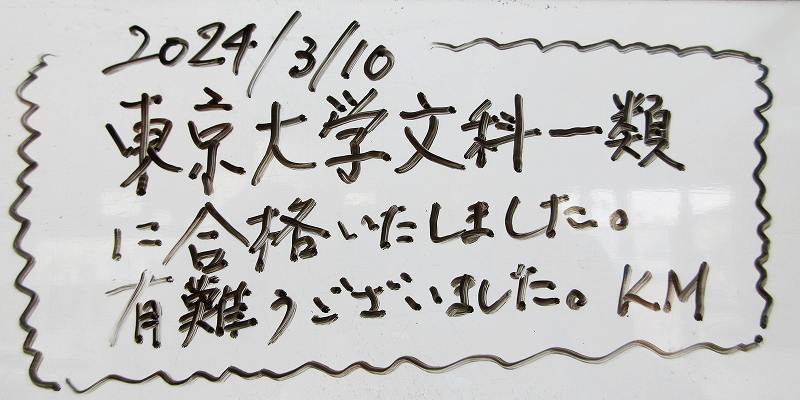 2024/3/10
東京大学文科一類
に合格いたしました。
有難うございました。KM